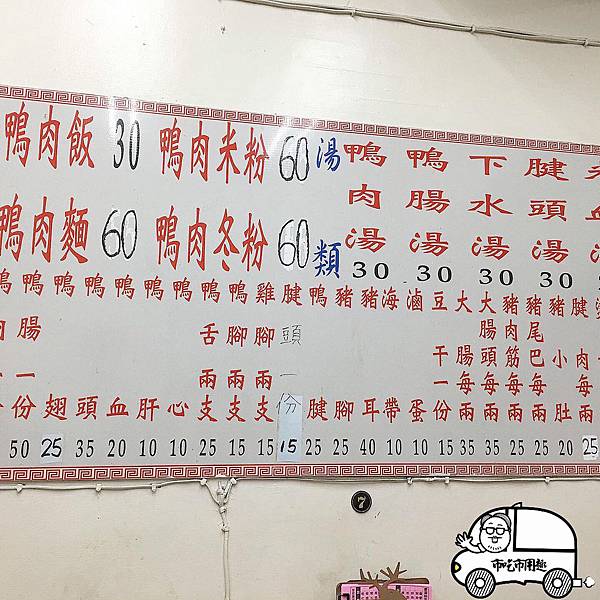 鴨肉飯 30
鴨肉米粉 60
鴨肉麵 60
鴨肉冬粉 60
湯類
鴨肉湯 30
鴨腸湯 30
下水湯 30
腱頭湯 30
鴨腸一份 50
鴨翅 25
鴨頭 35
鴨血 20
鴨肝 10
鴨心 10
鴨舌兩支 25
鴨腳兩支 15
雞腳兩支 15
腱頭一份 15
鴨腱 25
豬腳 25
豬耳 40
海帶 10
滷蛋 10
豆干一份 15
大腸每兩 35
大腸頭每兩 35
豬肉筋每兩 35
豬尾巴每兩 25
豬小肚 20
腱肉每兩 25
7
市吃市用趣